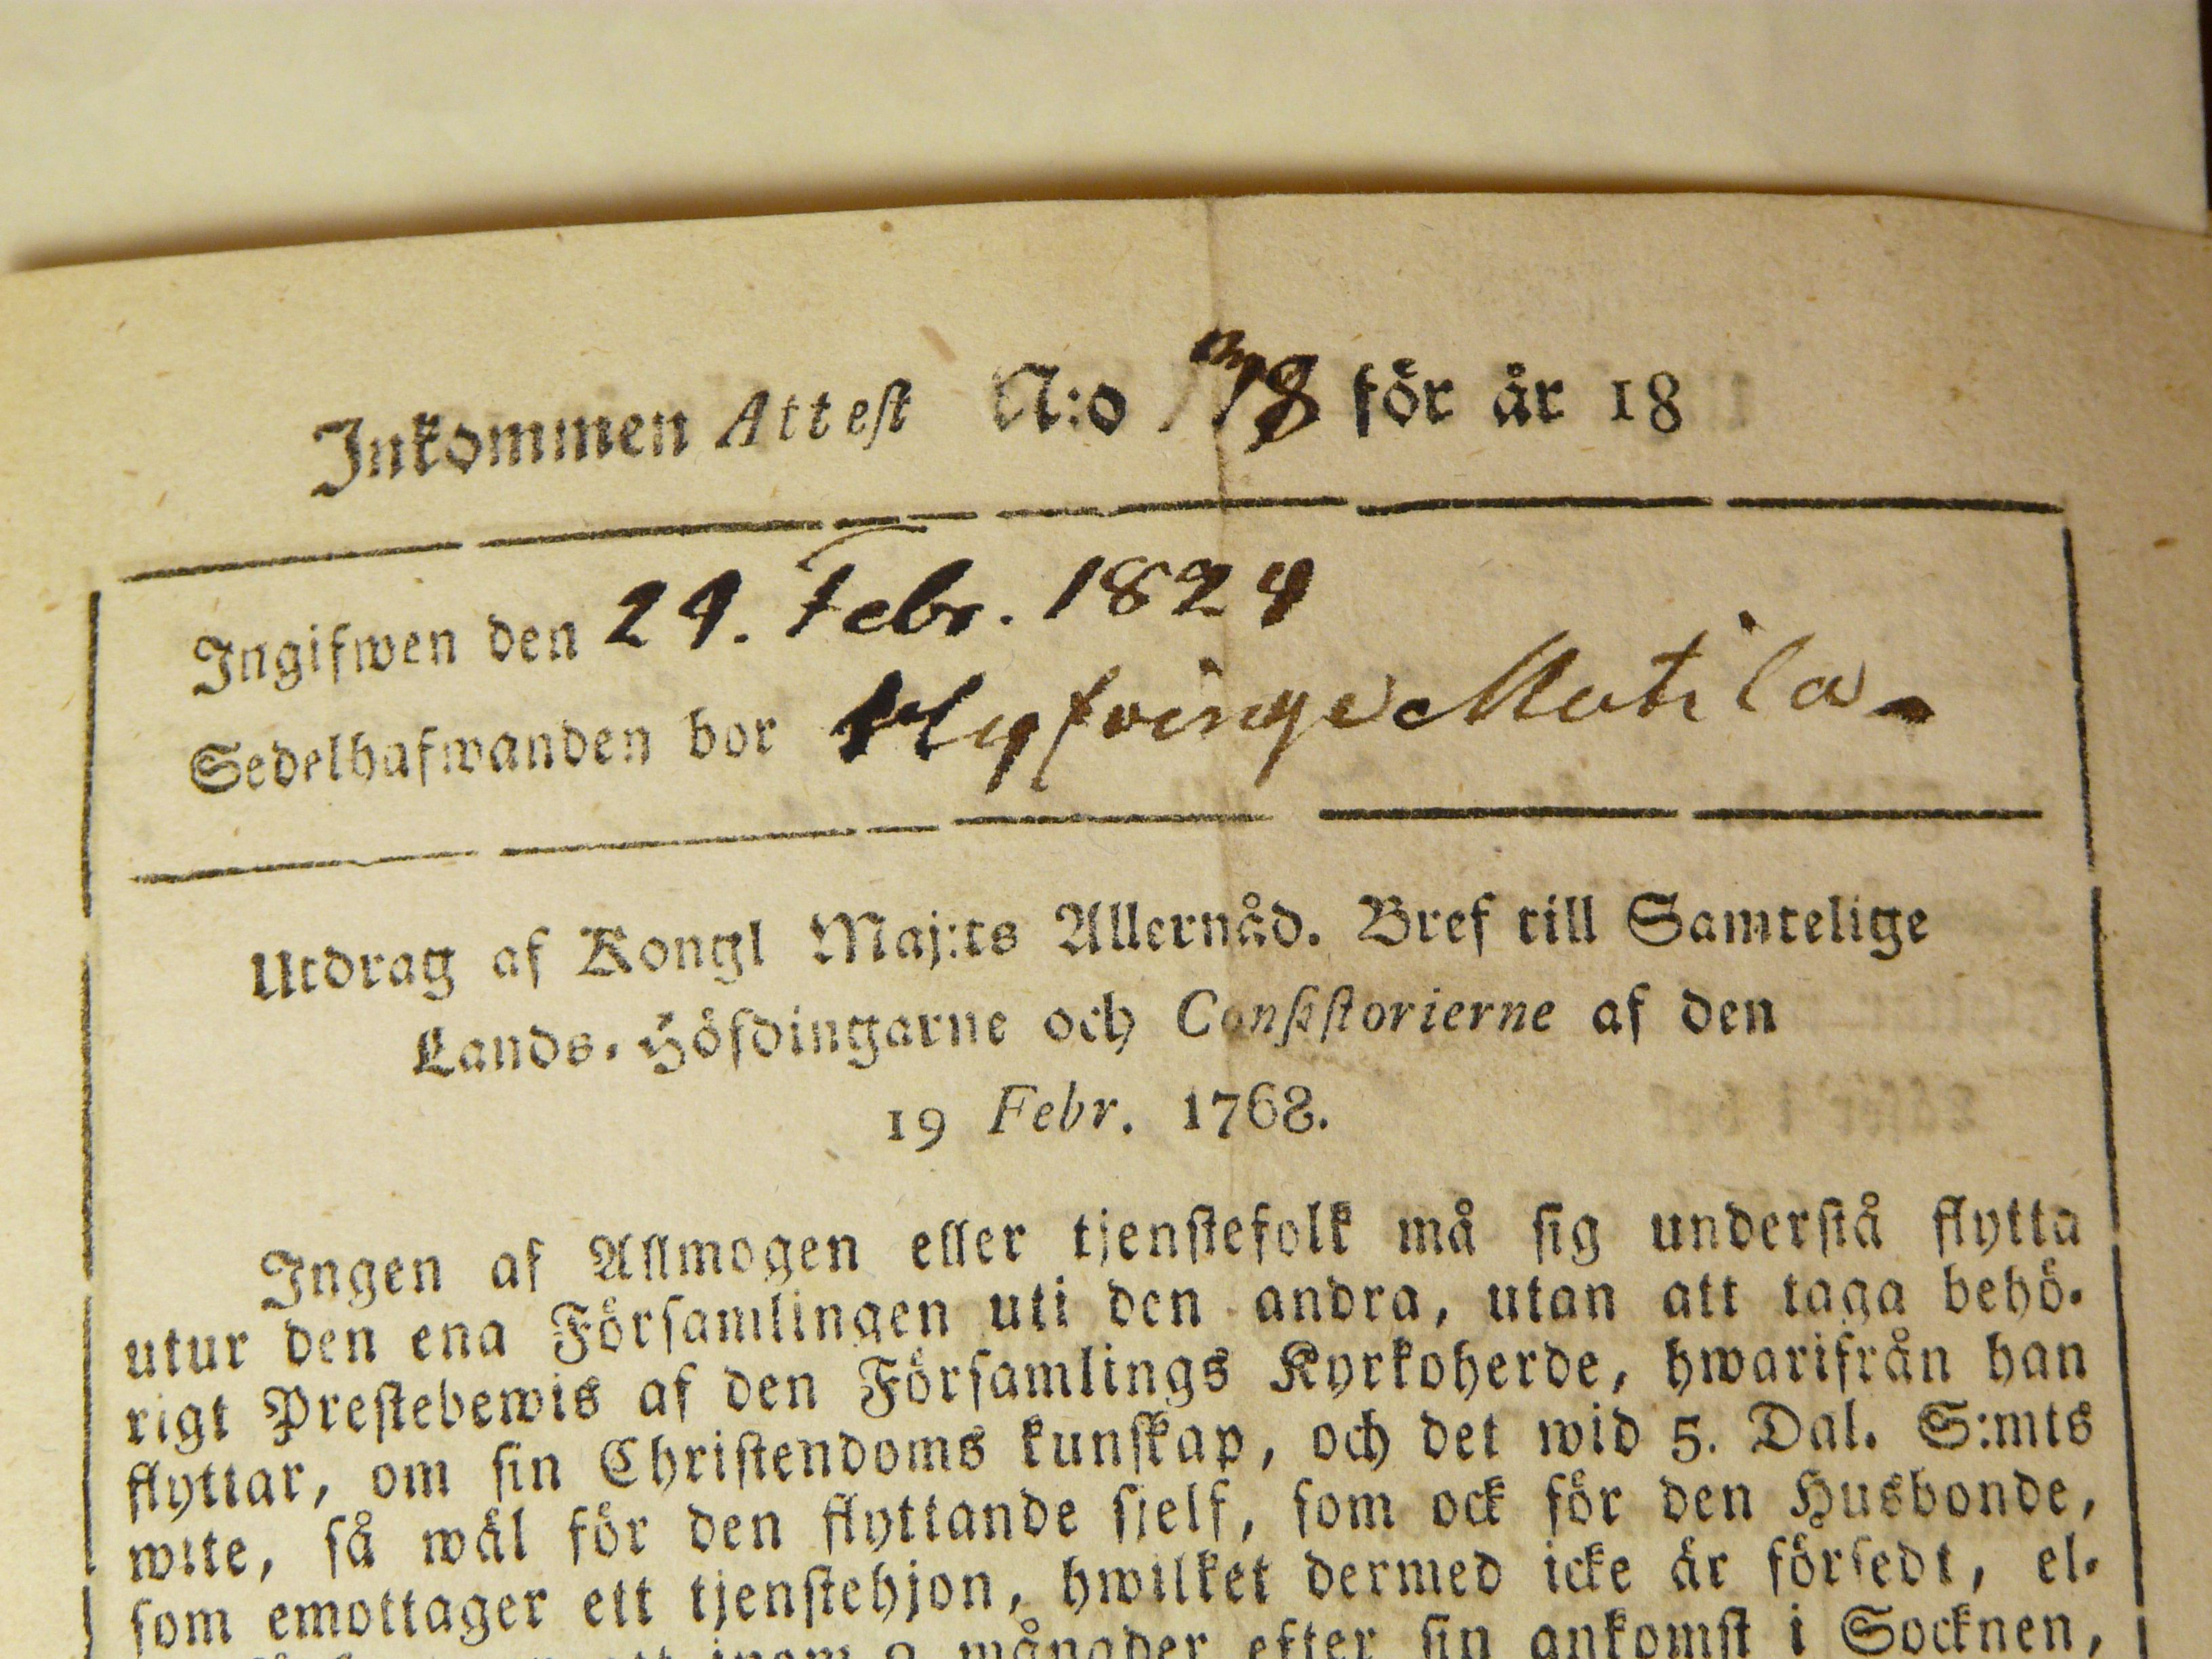 Inkommen Attest N:o 18 för år 18
Ingifwen den 24. Febr. 1824
Sedelhafwanden bor Mutila
Utdrag af Kongl Maj:ts Allernåd. Bref till Samtelige
Lands-Höfdingarne och Consistorierne af den
19 Febr. 1768.
Ingen af Allmogen eller tjenstefolk må sig understå flytta
utur den ena Församlingen uti den andra, utan att taga behö-
rigt Prestebewis af den Församlings Kyrkoherde, hwarifrån han
flyttar, om sin Christendoms kunskap, och det wid 5. Dal. S:mts
wite, så wäl för den flyttande sjelf, som ock för den Husbonde,
som emottager ett tjenstehjon, hwilket dermed icke är försedt, el-
inom 2 månader efter sin ankomst i Socknen,